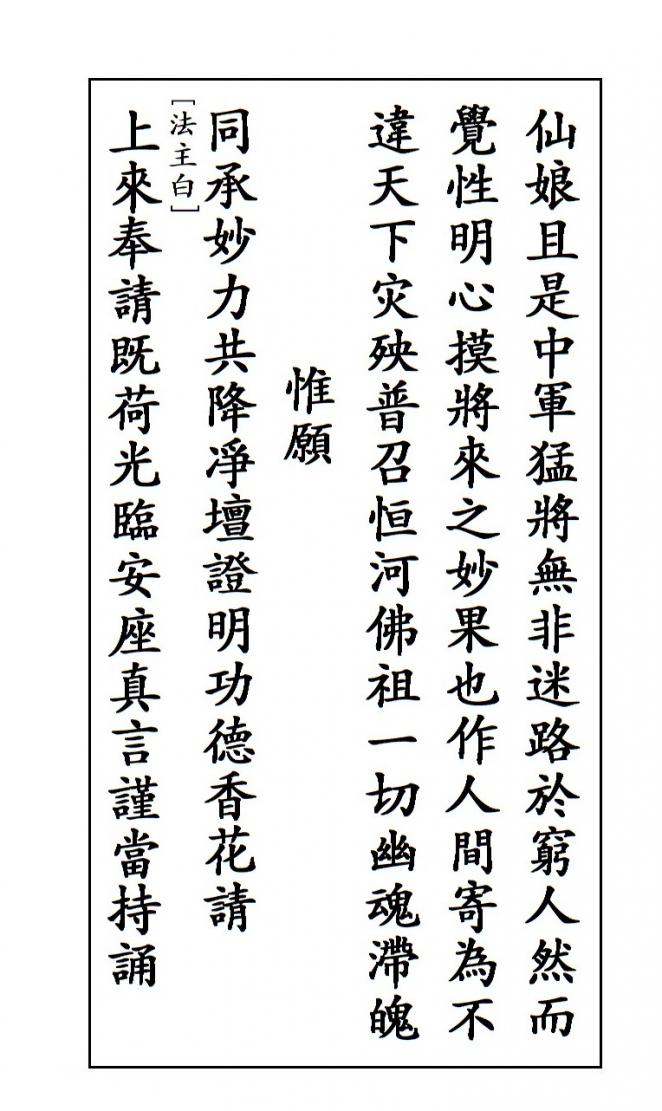 仙娘且是中軍猛將無非迷路於窮人然而
覺性明心摸將來之妙果也作人間寄為不
違天下灾殃普召恒河佛祖一切幽魂滯魄
惟願
同承妙力共降凈壇證明功德香花請
[法主白]
上來奉請既荷光臨安座真言謹當持誦